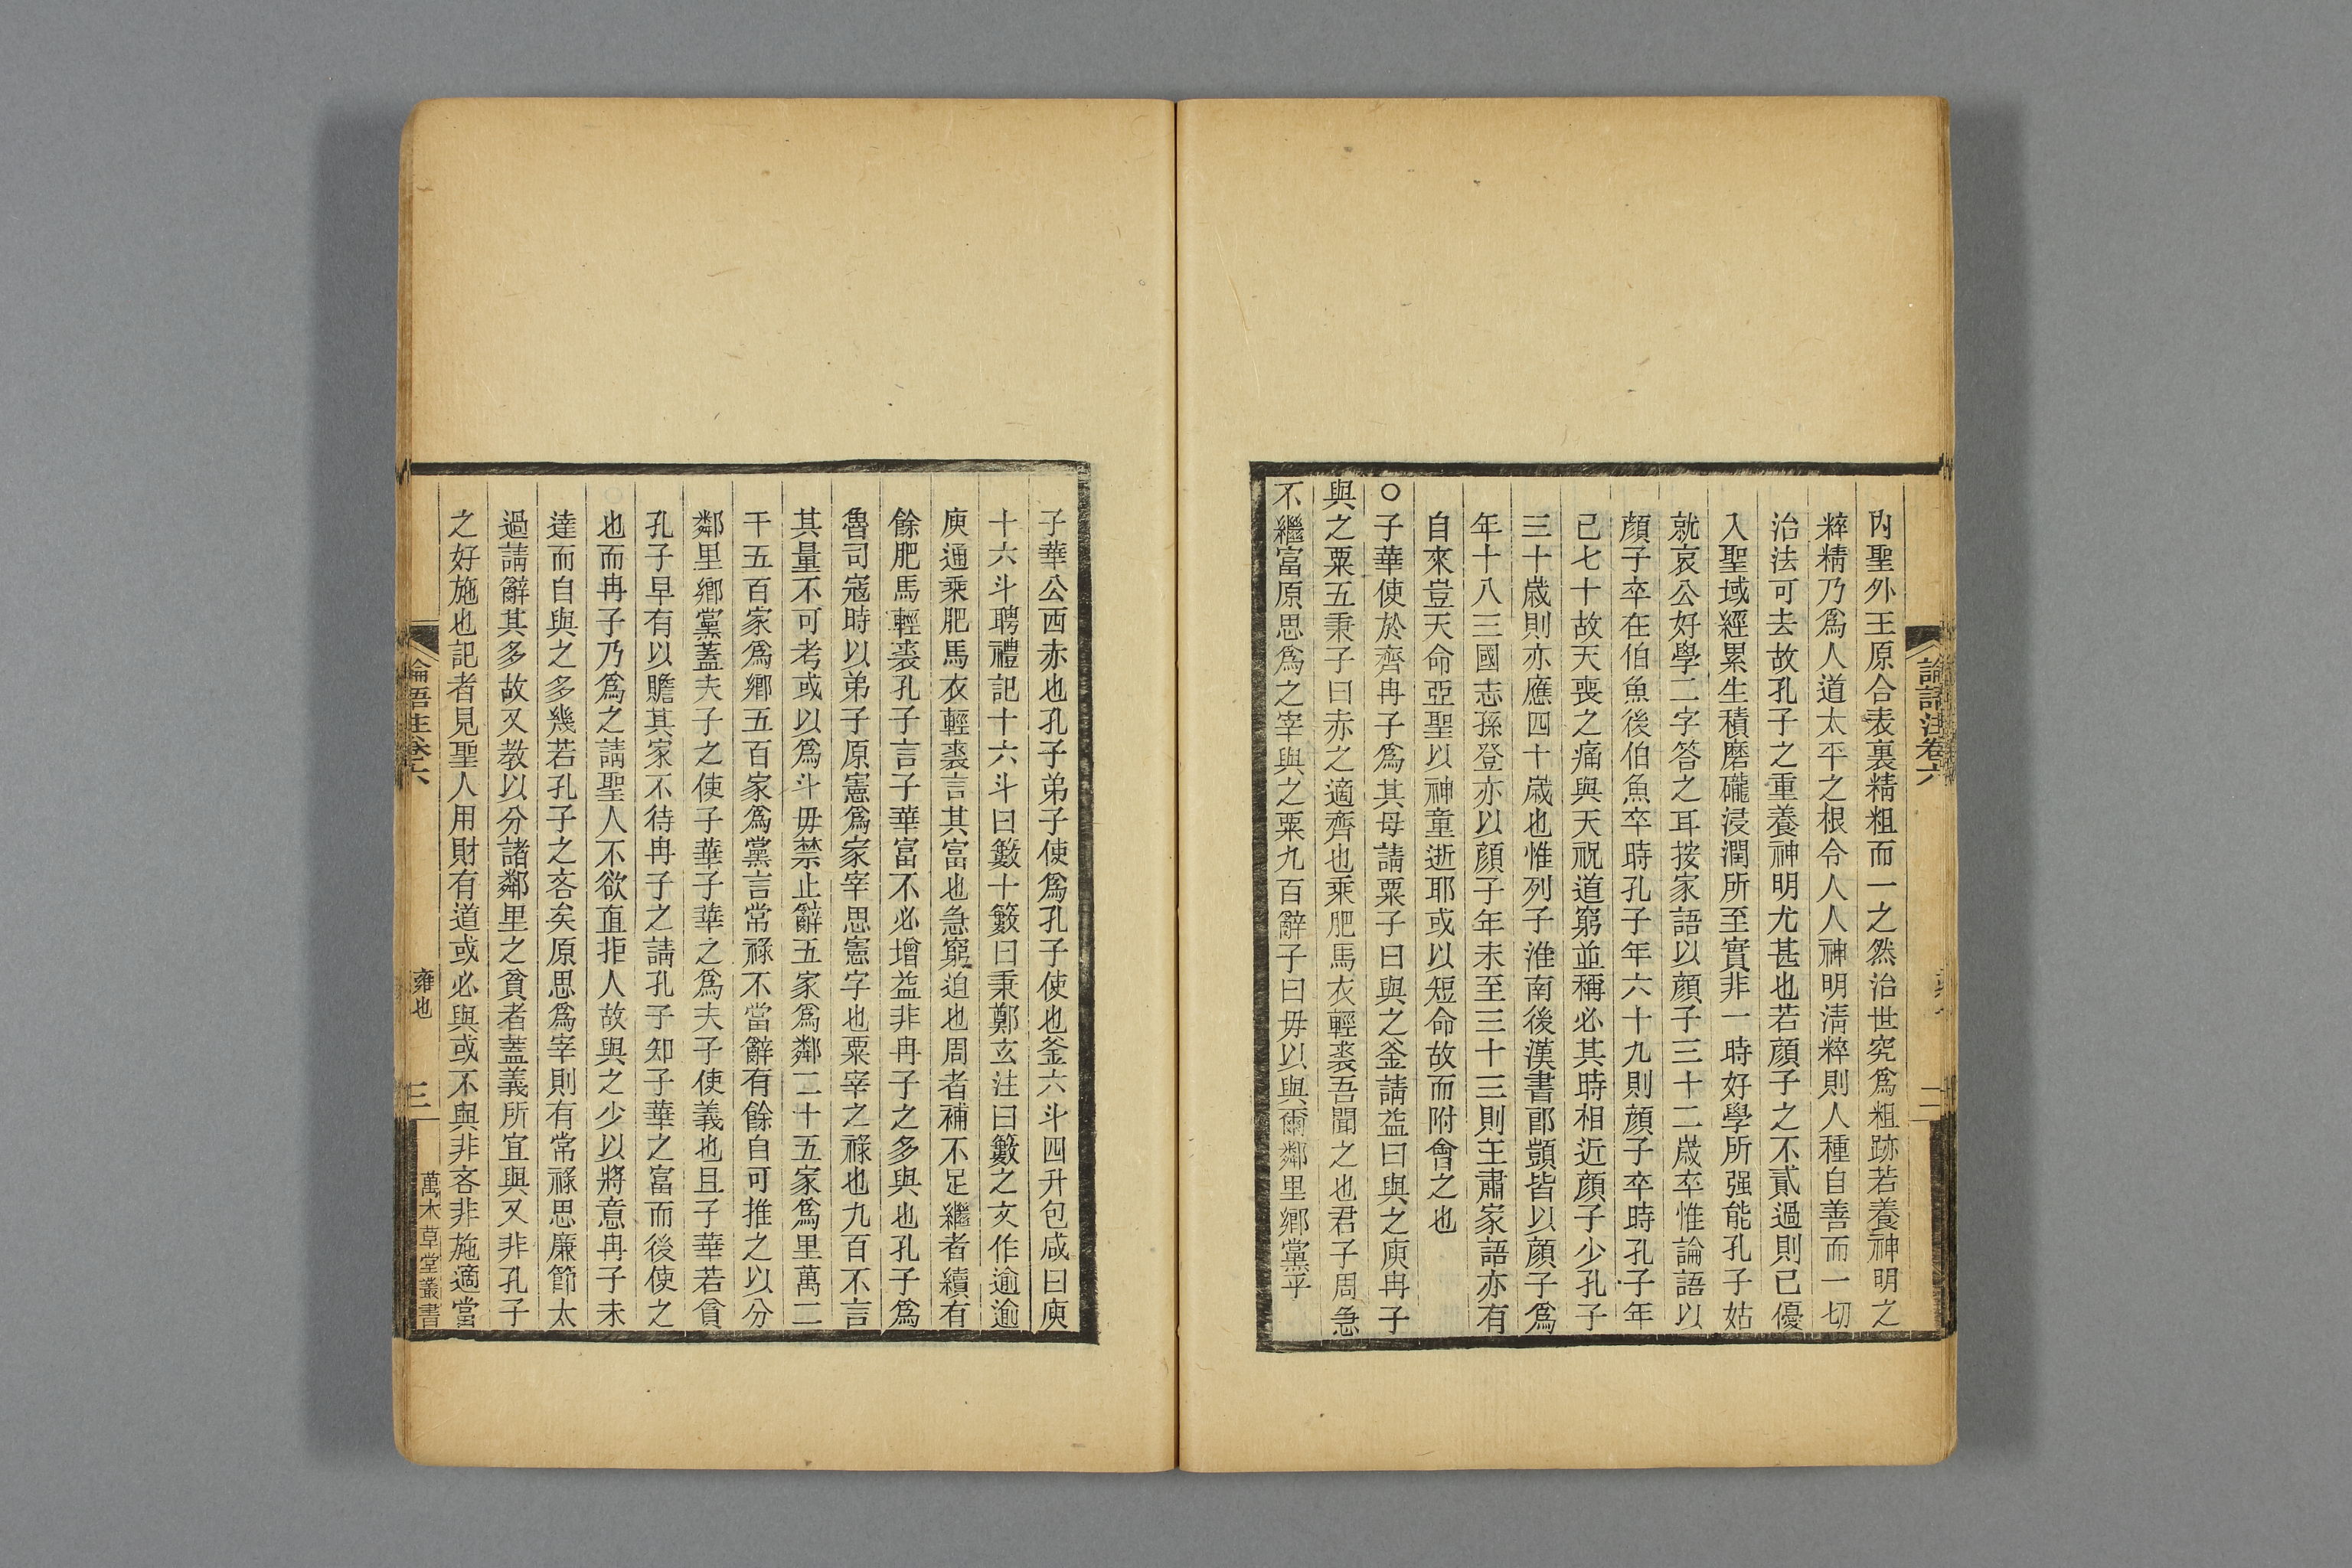 論語注卷六
二
內聖外王原合表裏精粗而一之然治世究爲粗跡若養神明之
粹精乃爲人道太平之根令人人神明淸粹則人種自善而一切
治法可去故孔子之重養神明尤甚也若顏子之不貳過則已優
入聖域經累生積磨礲浸潤所至實非一時好學所强能孔子姑
就哀公好學二字答之耳按家語以顏子三十二歲卒惟論語以
顏子卒在伯魚後伯魚卒時孔子年六十九則顏子卒時孔子年
已七十故天喪之痛與天祝道窮並稱必其時相近顏子少孔子
三十歲則亦應四十歲也惟列子淮南後漢書郎顗皆以顏子爲
年十八三國志孫登亦以顏子年未至三十三則王肅家語亦有
自來豈天命亞聖以神童逝耶或以短命故而附會之也
○子華使於齊冉子爲其母請粟子曰與之釜請益曰與之庾冉子
與之粟五秉子曰赤之適齊也乘肥馬衣輕裘吾聞之也君子周急
不繼富原思爲之宰與之粟九百辭子曰毋以與爾鄰里鄉黨乎
子華公西赤也孔子弟子使爲孔子使也釜六斗四升包咸曰庾
十六斗聘禮記十六斗曰籔十籔曰秉鄭玄注曰籔之文作逾逾
庾通乘肥馬衣輕裘言其富也急窮迫也周者補不足繼者續有
餘肥馬輕裘孔子言子華富不必增益非冉子之多與也孔子爲
魯司寇時以弟子原憲爲家宰思憲字也粟宰之祿也九百不言
其量不可考或以爲斗毋禁止辭五家爲鄰二十五家爲里萬二
千五百家爲鄉五百家爲黨言常祿不當辭有餘自可推之以分
鄰里鄉黨蓋夫子之使子華子華之爲夫子使義也且子華若貧
孔子早有以贍其家不待冉子之請孔子知子華之富而後使之
也而冉子乃爲之請聖人不欲直拒人故與之少以將意冉子未
達而自與之多幾若孔子之吝矣原思爲宰則有常祿思廉節太
過請辭其多故又教以分諸鄰里之貧者蓋義所宜與又非孔子
之好施也記者見聖人用財有道或必與或不與非吝非施適當
論語注卷六
雍也
三
萬木草堂叢書